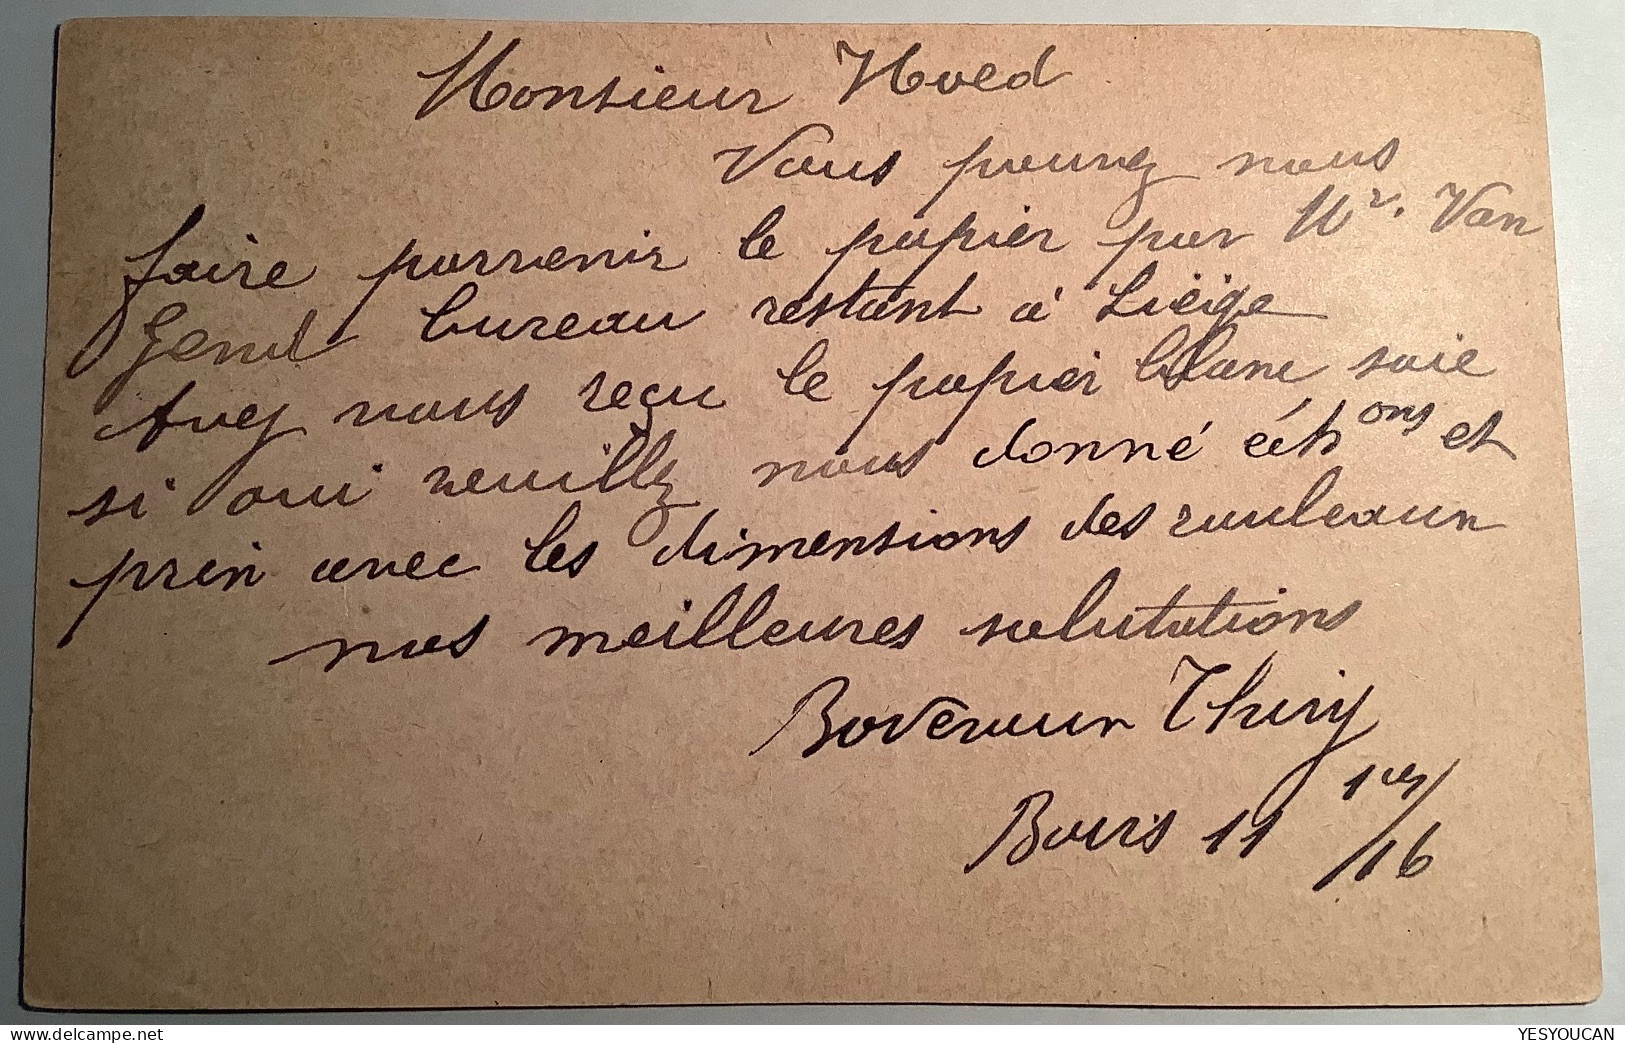 Monsieur Hoed
Vous pouvez nous
faire parvenir le papier par Mr. Van
Gend bureau restant à Liéige
Avez nous reçu le papier blanc soie
si oui veuillez nous donné éch ons et
prix avec les dimensions des rouleaux
nos meilleures salutations
Thiry
11 /16
delcampe.net
YESYOUCAN